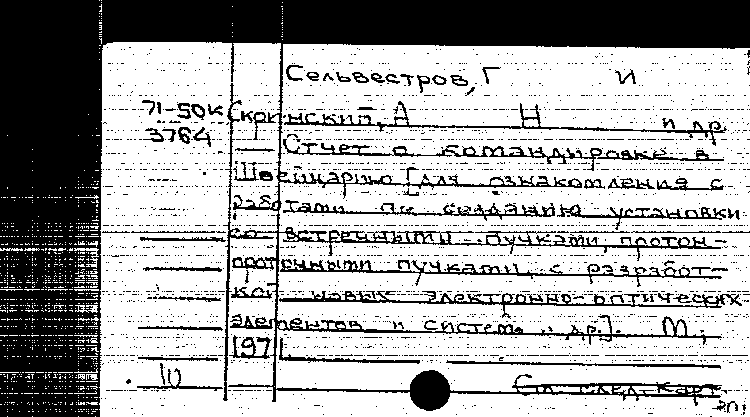 Сельвестров, Г И
71-50К Скринский, А Н и др
3764 Отчет о командировке в
Швейцарию [для ознакомления с
работами по созданию установки
со встречными пучками, протон-
протонными пучками, с разработ-
кой новых электронно-оптических
элементов и систем и др.]. М.,
1971
10 См. след. карт